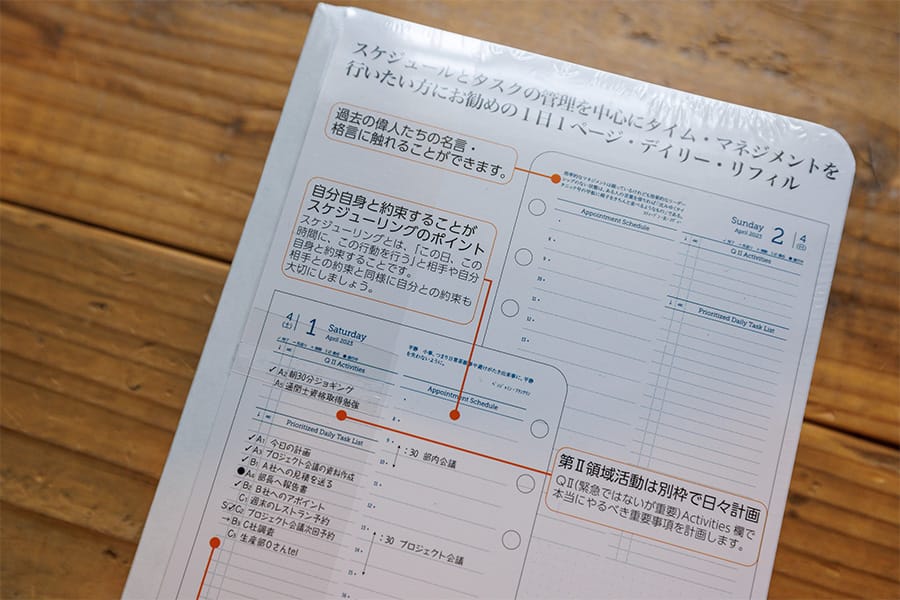 スケジュールとタスクの管理を中心にタイム・マネジメントを
行いたい方にお勧めの1日1ページ・デイリー・リフィル
過去の偉人たちの名言・
格言に触れることができます。
自分自身と約束することが
スケジューリングのポイント
スケジューリングとは、「この日、この
時間に、この行動を行う」と相手や自分
自身と約束することです。
相手との約束と同様に自分との約束も
大切にしましょう。
Appointment Schedule
8
9
10
11
12
13
Sunday
April 2023
2
4
(日)
QII Activities
Prioritized Daily Task List
4
(土)
1
Saturday
April 2023
QII Activities
✓A2 朝30分ジョギング
A5 通関士資格取得勉強
Prioritized Daily Task List
✓A1 今日の計画
✓A3 プロジェクト会議の資料作成
✓B1 A社への見積を送る
●A4 部長へ報告書
✓B2 B社へのアポイント
C1 週末のレストラン予約
✓C2 プロジェクト会議次回予約
→B3 C社調査
C3 生産部Oさんtel
を失わないように。
Appointment Schedule
8
9
:30 部内会議
10
11
12
13
14
:30 プロジェクト会議
15
16
第Ⅱ領域活動は別枠で日々計画
QⅡ(緊急ではないが重要)Activities 欄で
本当にやるべき重要事項を計画します。